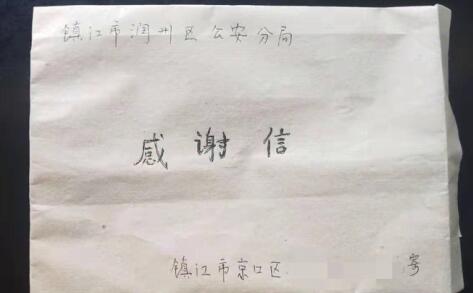 镇江市润州区公安分局
感谢信
镇江市京口区 寄